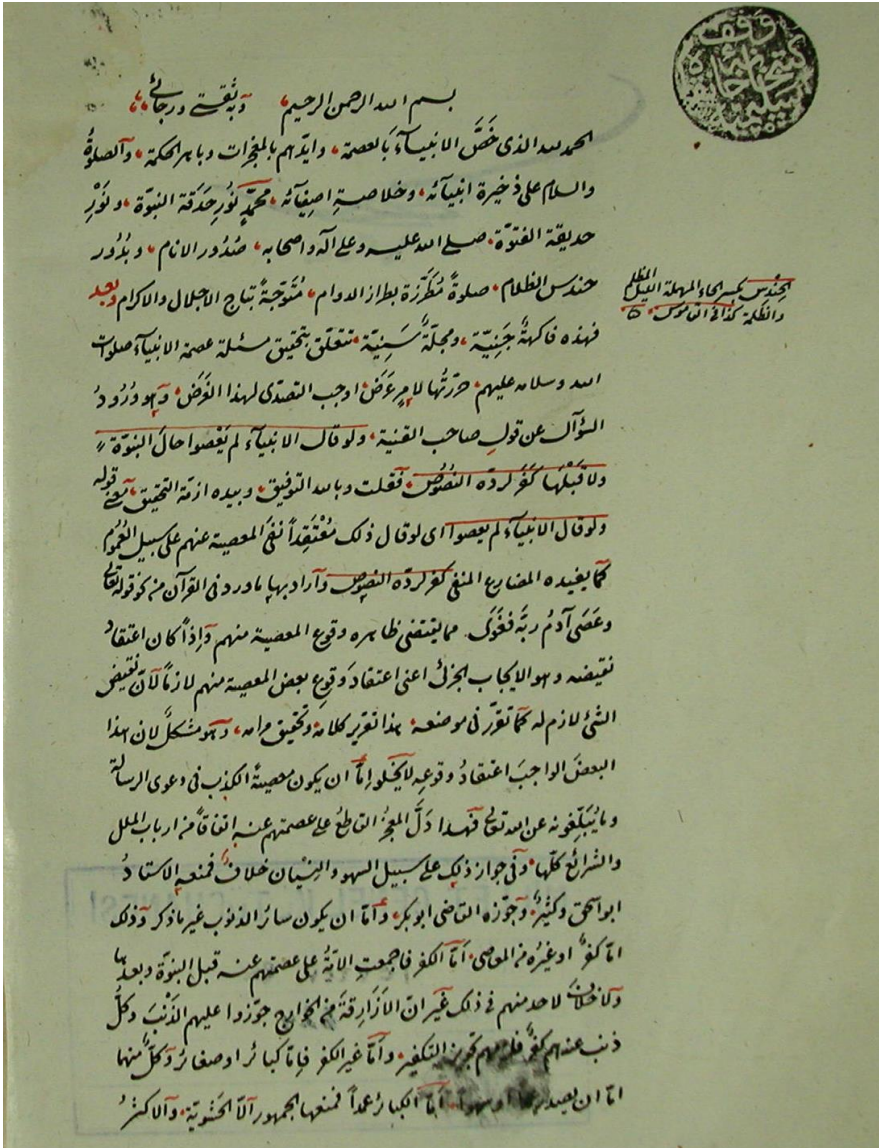 بسم الله الرحمن الرحيم وبه ثقتي ورجائي
الحمد لله الذي خَصَّ الانبيآءَ بالعصمة، وايّدهم بالمعجزات وباهر الحكمة، والصلوةُ
والسلام على ذخيرة انبيآئه، وخلاصةِ اصفيآئه، محمّدٍ نُورِ حَدَقة النبوّة، ونَوْرِ
حديقة الفتوّة، صلى الله عليه وعلى آله واصحابه، صُدُور الانام، وبدُور
حندس الظلام، صلوةً مُطَرَّزة بطراز الدوام، مُتَوَّجةً بتاج الاجلال والاكرام وبعد
الحِنْدس بكسر الحاء المهملة الليل المظلم
والظلمة كذا في القاموس
فهذه فاكهةٌ جَنِيّة، ومجلّةٌ سَنِيّة، تتعلّق بتحقيق مسئلة عصمة الانبيآء صلوات
الله وسلامه عليهم، حرّرتُها لامرٍ عَرَض، اوجب التصدّى لهذا الغَرَض، وهو وُرُودُ
السؤآل عن قولِ صاحب القنية، ولو قال الانبيآء لم يَعْصوا حالَ النبوّة
ولا قَبْلَها كَفَر لردّه النصُوص، فقلت وبالله التوفيق، وبيده ازمّة التحقيق، معنى قوله
ولو قال الانبيآء لم يعصوا اى لو قال ذلك مُعْتَقِداً نفىَ المعصية عنهم على سبيل العُمُوم
كما يفيده المضارع المنفى كفر لردّه النصوص وآراد بها ما ورد فى القرآن من نحو قوله تعالى
وعَصَى آدمُ ربَّه فغَوَى. مما يقتضى ظاهره وقوع المعصية منهم وَاِذاً كان اعتقادُ
نقيضه وهو الايجاب الجزئ اعنى اعتقادَ وَقوعِ بعض المعصية منهم لازماً لآنّ نقيض
الشئ لازم له كما تقرّر فى موضعه هذا تقرير كلامه وتحقيق مرامه، وهو مشكلٌ لان هذا
البعضَ الواجبَ اعتقادُ وقوعِه لا يخلو اِمّا ان يكون معصيةَ الكذب فى دعوى الرسالة
وما يُبَلِّغونه عن الله تعالى فهذا دَلَّ المعجزُ القاطعُ على عصمتهم عنه اتفاقاً من ارباب الملل
والشرائع كلّها، وفى جواز ذلك على سبيل السهو والنِسْيان خلافٌ فمنعه الاستادُ
ابو اسحق وكثيرٌ، وجَوّزه القاضى ابو بكر، وأمّا ان يكون سائر الذنوب غير ما ذكر وذلك
امّا كفرٌ او غيرُه من المعاصى، أمّا الكفر فاجمعتِ الامّةُ على عصمتهم عنه قبل النبوّة وبعدها
ولا خلاف لاحد منهم فى ذلك غيرَ انّ الاَزَارِقةَ من الخوارج جوّزوا عليهم الذَنْبَ وكلُّ
ذنب عندهم كفرٌ فلزمهم تجويز التكفير، وأمّا غير الكفر فاِمّا كبائر او صغائر وكلٌّ منها
امّا ان يصدر عمداً او سهواً، أمّا الكبائر عمداً فمنعها الجمهور اِلاّ الحَشَوية، والاكثرُ